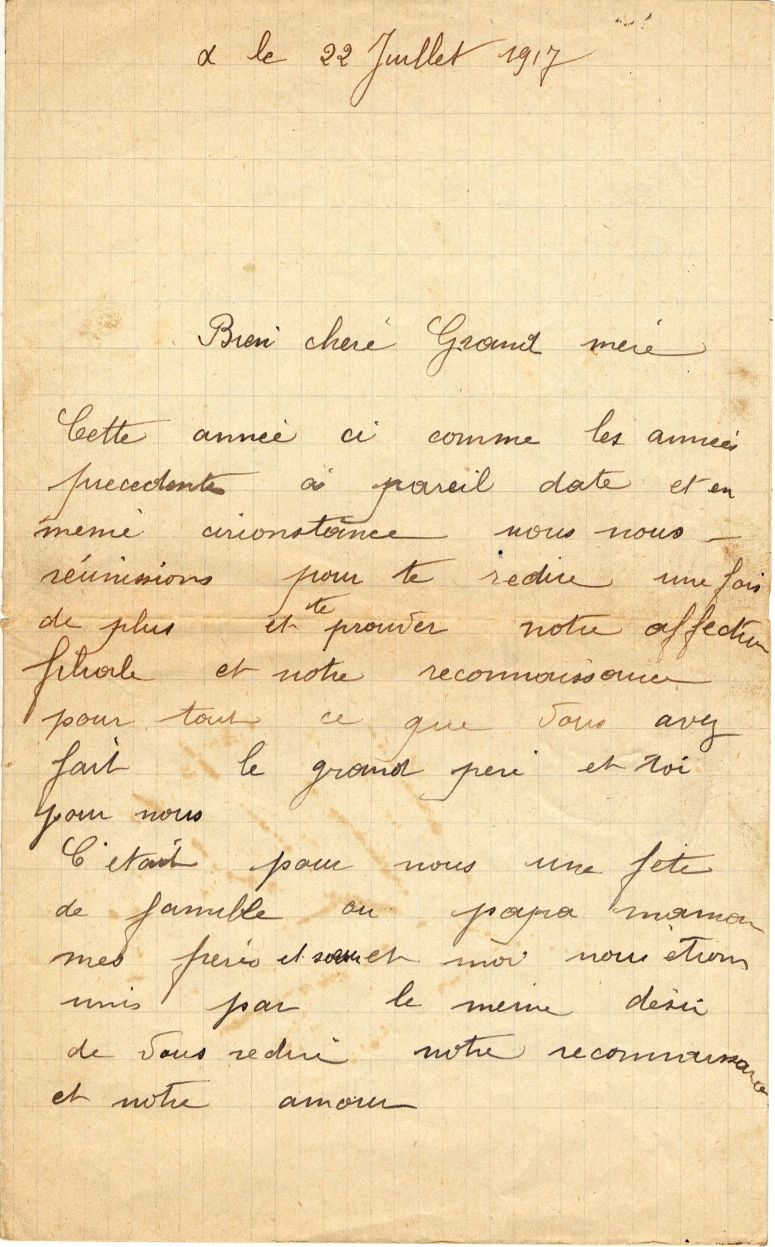 α le 22 Juillet 1917
Bien cheré Grand meré
Cette anneé ci comme les anneés
precedentes à pareil date et en
memé circonstance nous nous
réunissions pour te redire une fois
de plus et te prouver notre affection
filiale et notre reconnaissance
pour tout ce que vous avez
fait le grand peré et toi
pour nous
C'etait pour nous une fete
de famille ou papa maman
mes frerés et sœur et moi nous étions
unis par le meme désir
de vous rediré notre reconnaissance
et notre amour